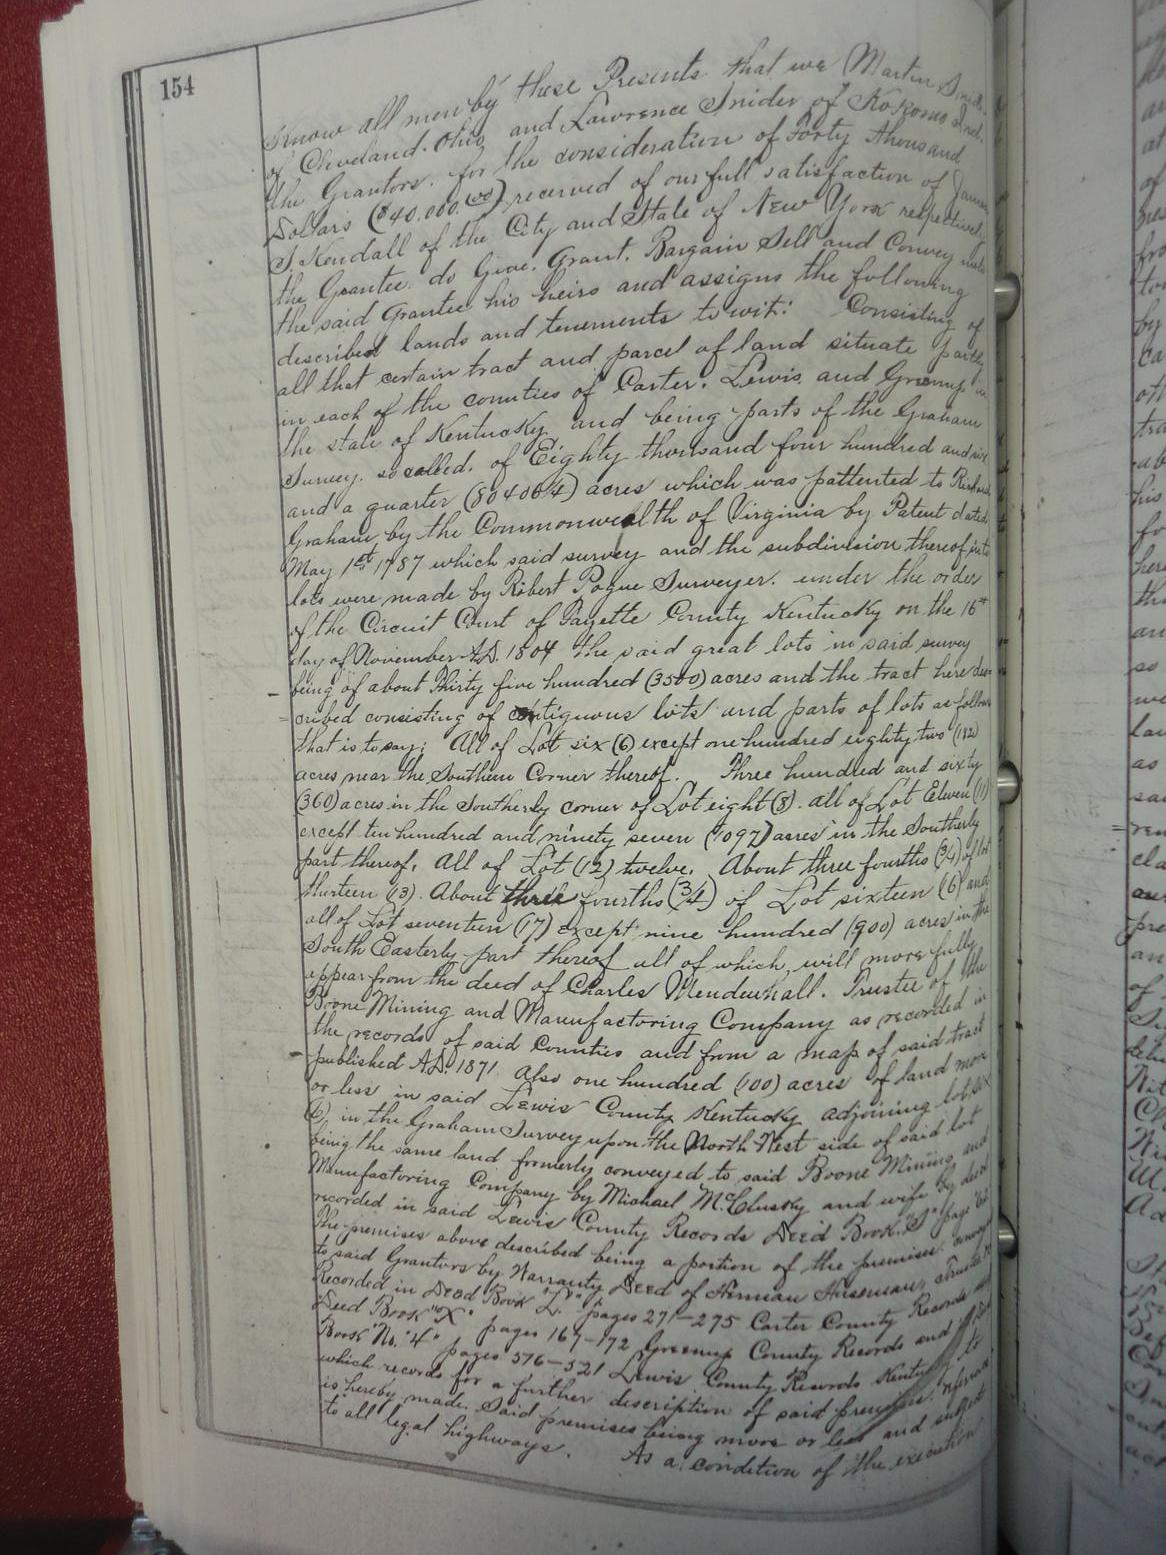 154
Know all men by these Presents that we Martin
of Cleveland. Ohio, and Lawrence Snider of Kokomo Ind.
the Grantors. for the consideration of Forty thousand
Dollars ($40,000.00) received of our full satisfaction of James
S. Kendall of the City and State of New York respectively
the Grantee. do Give. Grant. Bargain Sell and Convey unto
the said Grantee his heirs and assigns the following
described lands and tenements to wit: Consisting of
all that certain tract and parcel of land situate partly
in each of the counties of Carter. Lewis and Greenup in
the state of Kentucky and being parts of the Graham
Survey. so called. of Eighty thousand four hundred and six
and a quarter acres which was pattented to Richard
Graham by the Commonwealth of Virginia by Patent dated
May 1st 1787 which said survey and the subdivision thereof into
lots were made by Robert Pogue Surveyer. under the order
of the Circuit Court of Fayette County Kentucky on the 16th
day of November A.D. 1804 the said great lots in said survey
being of about Thirty five hundred (3500) acres and the tract here des-
cribed consisting of contiguous lots and parts of lots as follows
that is to say: All of Lot six (6) except one hundred eighty two (182)
acres near the Southern Corner thereof. Three hundred and sixty
(360) acres in the Southerly corner of Lot eight (8). all of Lot Eleven (11)
except ten hundred and ninety seven (1097) acres in the Southerly
part thereof. All of Lot (12) twelve. About three fourths (3/4) of lot
thirteen (13). About three fourths (3/4) of Lot sixteen (16) and
all of Lot seventeen (17) except nine hundred (900) acres in the
South Easterly part thereof all of which will more fully
appear from the deed of Charles Mendenhall. Trustee of the
Boone Mining and Manufacturing Company as recorded in
the records of said Counties and from a map of said tract
published A.D. 1871. Also one hundred (100) acres of land more
or less in said Lewis County Kentucky adjoining lot six
(6) in the Graham Survey upon the North West side of said lot
being the same land formerly conveyed to said Boone Mining and
Manufacturing Company by Michael McClusky and wife by deed
recorded in said Lewis County Records Deed Book page
The premises above described being a portion of the premises conveyed
to said Grantors by Warranty Deed of Herman Huseman, Trustee
Recorded in Deed Book "L" pages 271-275 Carter County Records
Deed Book "X" pages 167-172 Greenup County Records and
Book No. "4" pages 576-521 Lewis County Records Kentucky to
which records for a further description of said premises reference
is hereby made. Said premises being more or less and subject
to all legal highways. As a condition of the execution